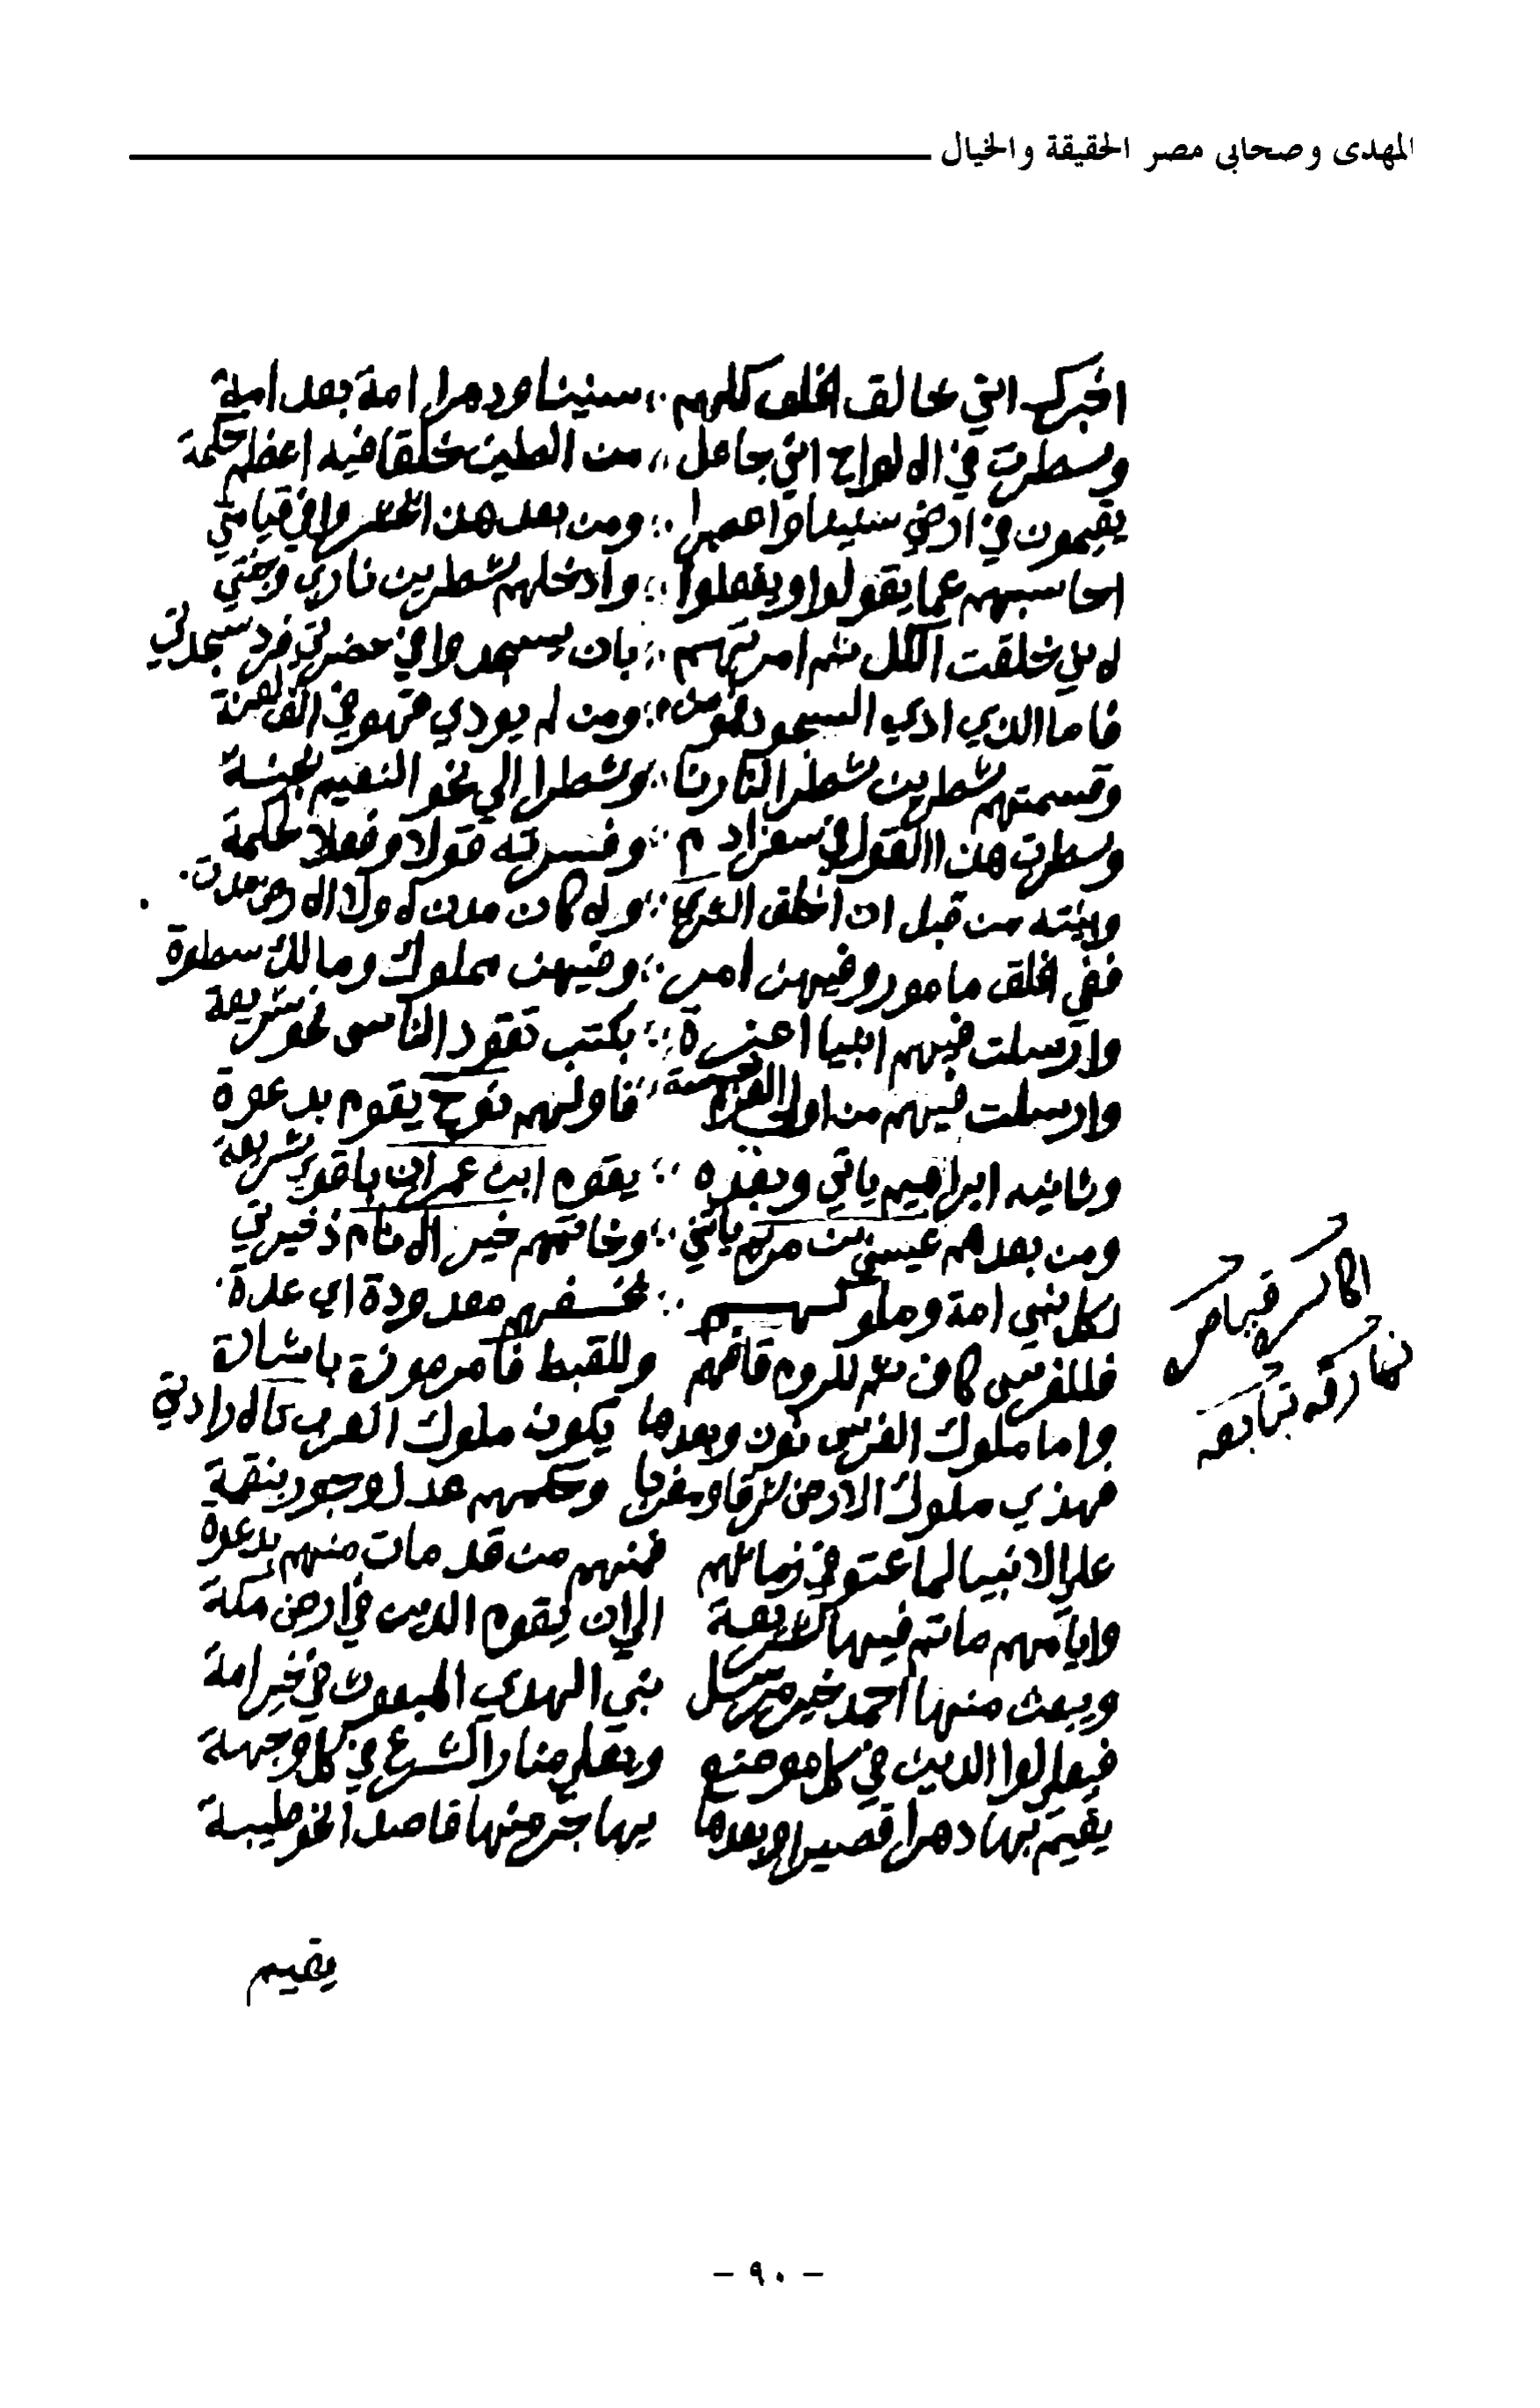 المهدى وصحابى مصر الحقيقة والخيال
اخبركم اني خالق الخلق كلهم سنينا ودهرا امة بعد امة
وسطرت في الالواح اني جاعل من الطين خلقا فيه اعظم حكمة
يقيمون في ارضي سنينا واعصرا ومن بعد هذا احشروا في قيامتي
احاسبهم عما يقولوا ويفعلوا وادخلهم شطرين ناري وجنتي
لاني خلقت الكل ثم امرتهم بان يسجدوا في حضرتي فرد سجدتي
فاما الذي ادي السجود ومن لم يودي فهو في
وقسمتهم شطرين شطر النارنا وشطرا الي نحو النعيم بجنة
وسطرت هذا القول في سفر ادم وفسرته قولا وفعلا لحكمة
وبينته من قبل ان اخلق العرب ولا كان مدن لا ولا الارض مدت
ففي الخلق مامور وفيهن امر وفيهن مملوك ومالك سطوة
وارسلت فيهم انبيا اعزة بكتب تقود الناس نحو شريعة
وارسلت فيهم من اولي العزم خمسة فاولهم نوح يقوم بدعوة
وثانيه ابراهيم ياتي وبعده يقوم ابن عمران باقوي شريعة
ومن بعدهم عيسي بن مريم ياتي وخاتمهم خير الانام ذخيرتي
لكل نبي امة وملوكهم معدودة اي عدة
فللفرس كان ثم للروم قائم وللقبط فامرموزة باشارة
واما ملوك الفرس نون وبعدها يكون ملوك العرب تا لارادتي
فهذي ملوك الارض شرقا ومغربا وحكمهم عدل وجور بنقمة
علي الانبيا لما عتو في زمانهم فمنهم من قد مات منهم بدعوة
وايامهم ماتم فيها الشريعة الي ان يقوم الدين في ارض مكة
ويبعث منها احمد خير مرسل نبي الهدي المبعوث في خير امة
فيعلوا الدين في كل موضع ويعلي منار الشرع في كل وجهة
يقيم بها دهرا قصيرا وبعدها يهاجر منها قاصدا نحو طيبة
اكاسره قياصره
تبابعه
يقيم
- ٩٠ -